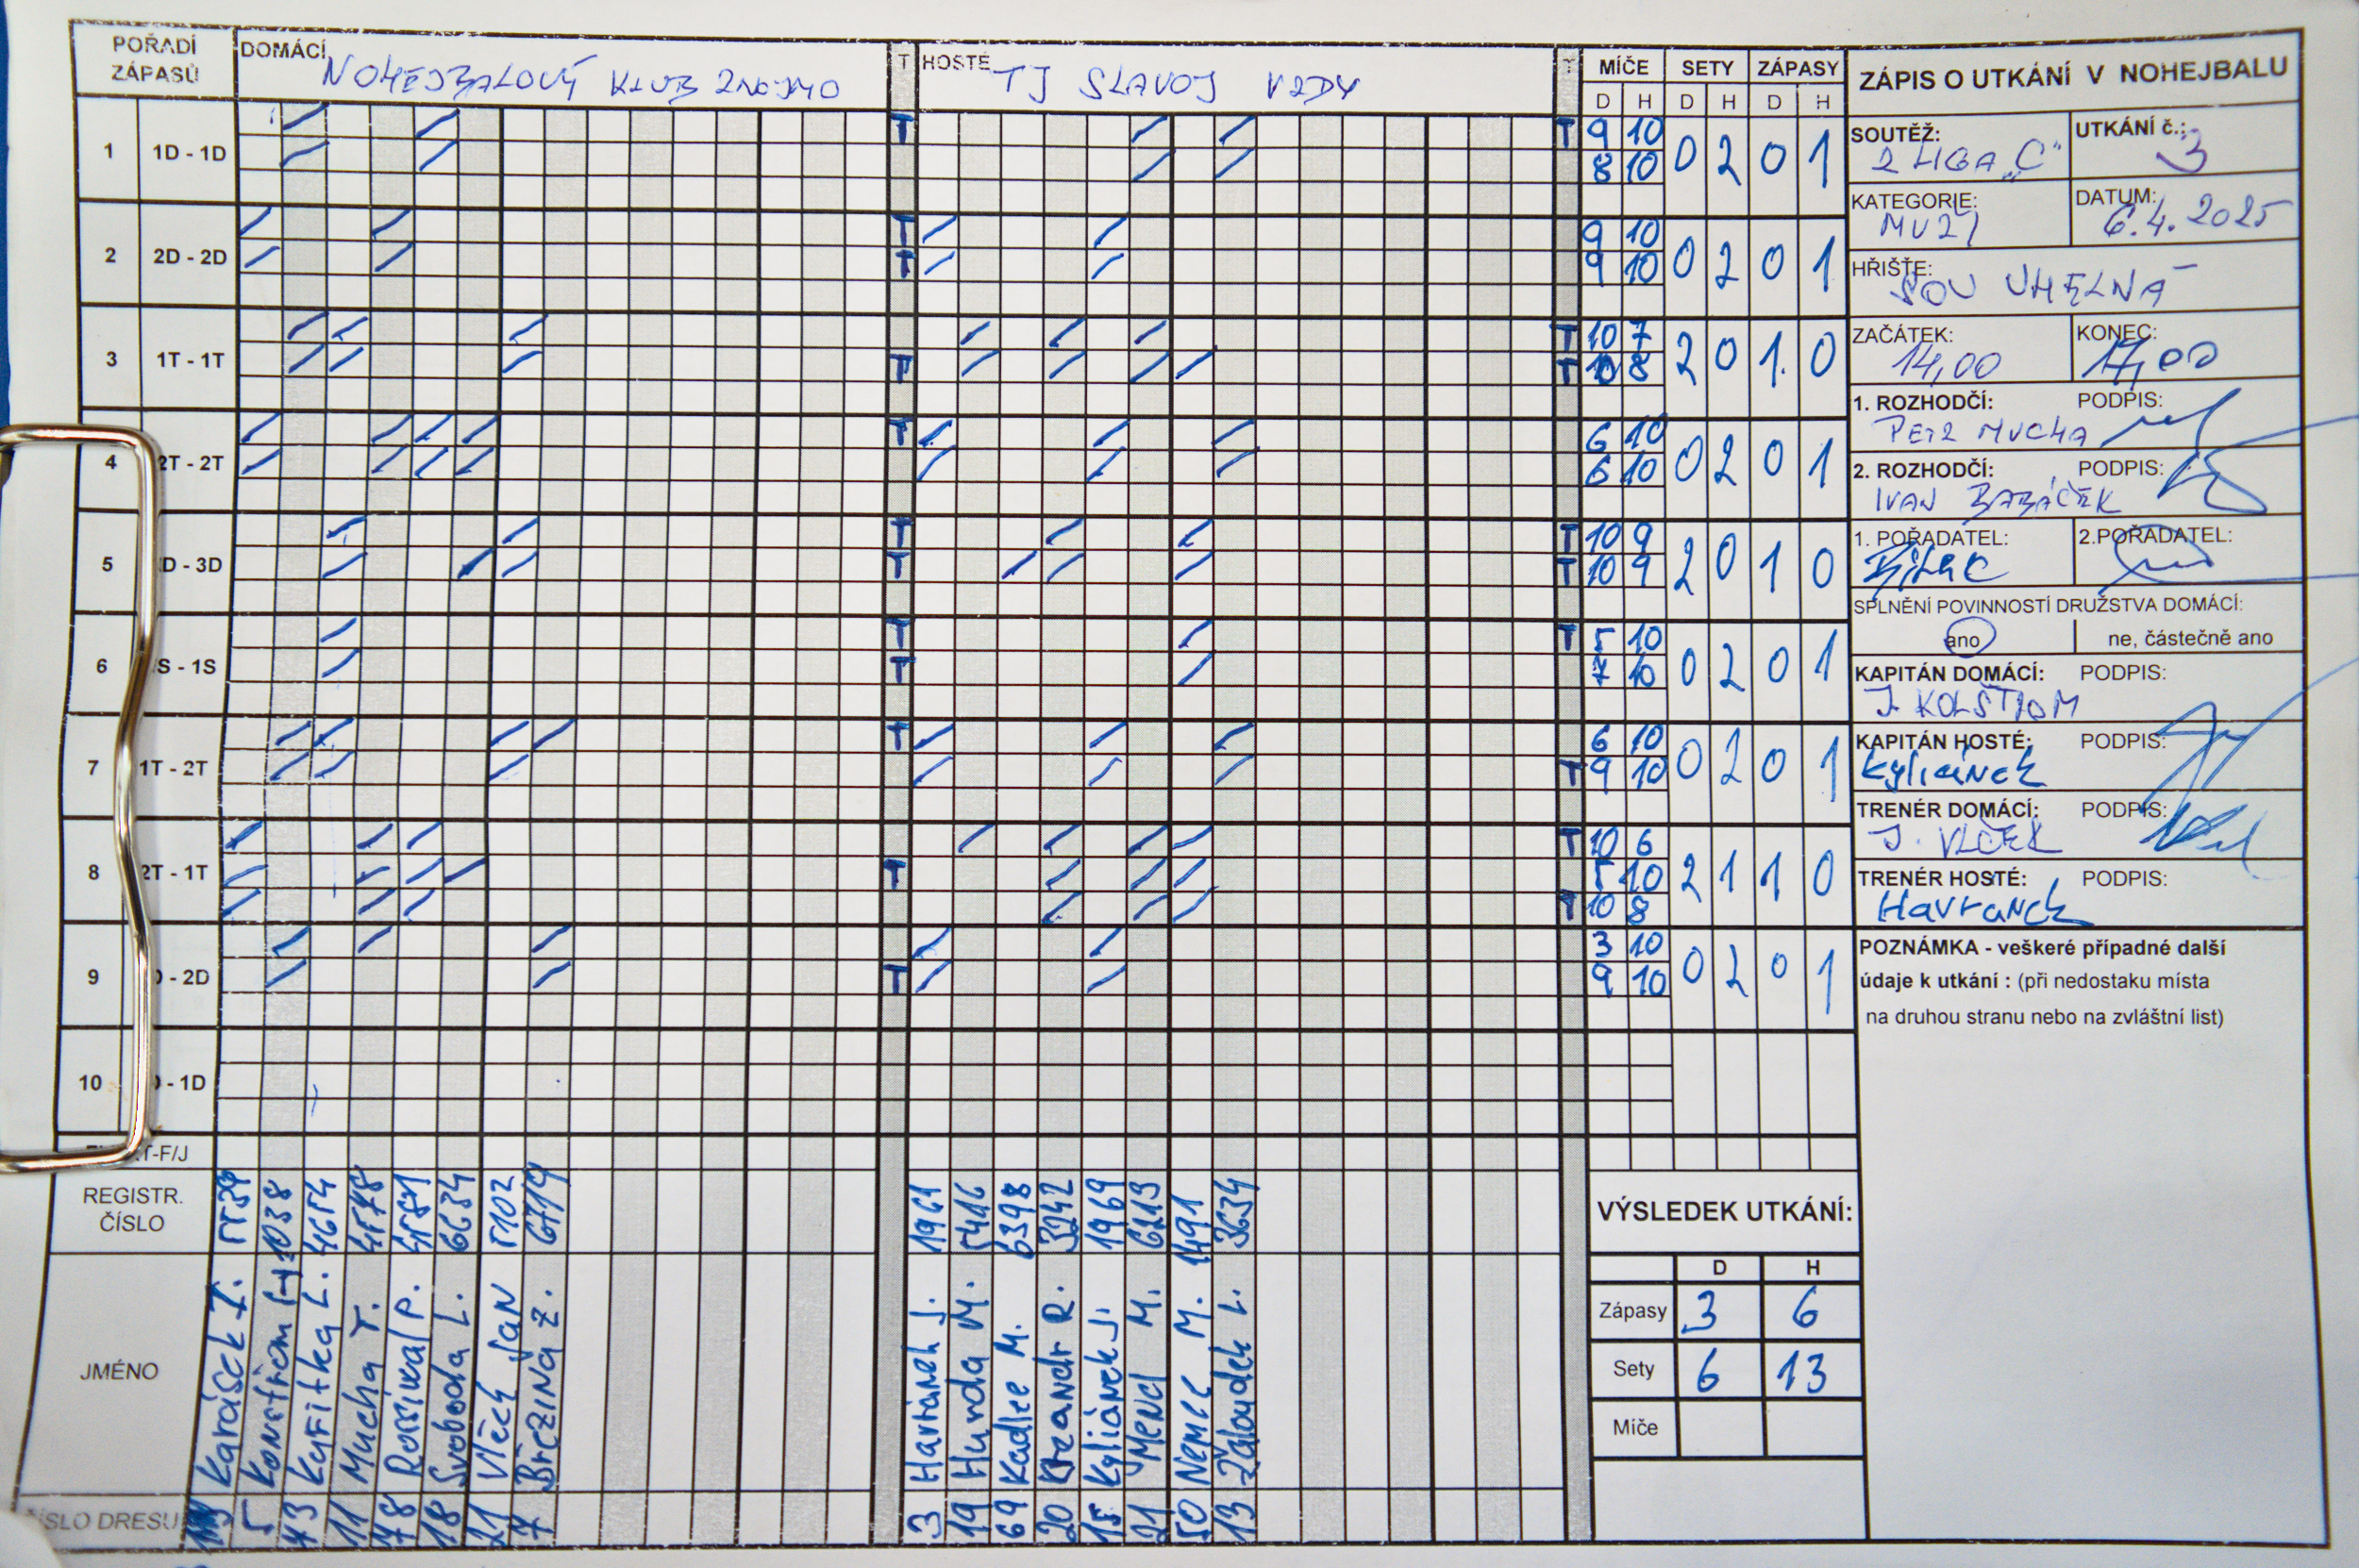 POŘADÍ ZÁPASŮ
DOMÁCÍ NOHEJBALOVÝ KLUB ZNOJMO T HOSTÉ TJ SLAVOJ T
MÍČE SETY ZÁPASY
D H D H D H
1 1D - 1D T T 9 10 0 2 0 1
8 10
2 2D - 2D T 9 10 0 2 0 1
T 9 10
3 1T - 1T T 10 7 2 0 1 0
T T 10 8
4 2T - 2T T 6 10 0 2 0 1
6 10
5 D - 3D T T 10 9 2 0 1 0
T T 10 9
6 S - 1S T T 5 10 0 2 0 1
T 7 10
7 1T - 2T T 6 10 0 2 0 1
T 9 10
8 2T - 1T T 10 6 2 1 1 0
T 5 10
T 10 8
9 - 2D 3 10 0 2 0 1
T 9 10
10 - 1D
T-F/J
REGISTR. ČÍSLO
1038 4578 6634 5102 6719
1961 5416 6398 3242 1969 6219 1491 3634
JMÉNO
Karásek I.
Kyfitka L.
Mucha T.
P.
Svoboda L.
Vlček Jan
Březina Z.
Havránek J.
Hurda M.
Kadlec M.
R.
Kyliánek J.
M.
Nemec M.
Žaloudek L.
ČÍSLO DRESU
5 43 11 78 18 21 7
3 19 69 20 15 21 50 13
ZÁPIS O UTKÁNÍ V NOHEJBALU
SOUTĚŽ: 2 LIGA „C“
UTKÁNÍ č.: 3
KATEGORIE: MUŽI
DATUM: 6.4.2025
HŘIŠTĚ: SOU UHELNÁ
ZAČÁTEK: 14,00
KONEC: 17,00
1. ROZHODČÍ: PETR MUCHA
PODPIS:
2. ROZHODČÍ: IVAN
PODPIS:
1. POŘADATEL:
2.POŘADATEL:
SPLNĚNÍ POVINNOSTÍ DRUŽSTVA DOMÁCÍ:
ano ne, částečně ano
KAPITÁN DOMÁCÍ: PODPIS:
KAPITÁN HOSTÉ: PODPIS:
Kyliánek
TRENÉR DOMÁCÍ: PODPIS:
J. VLČEK
TRENÉR HOSTÉ: PODPIS:
Havránek
POZNÁMKA - veškeré případné další
údaje k utkání : (při nedostaku místa
na druhou stranu nebo na zvláštní list)
VÝSLEDEK UTKÁNÍ:
D H
Zápasy 3 6
Sety 6 13
Míče